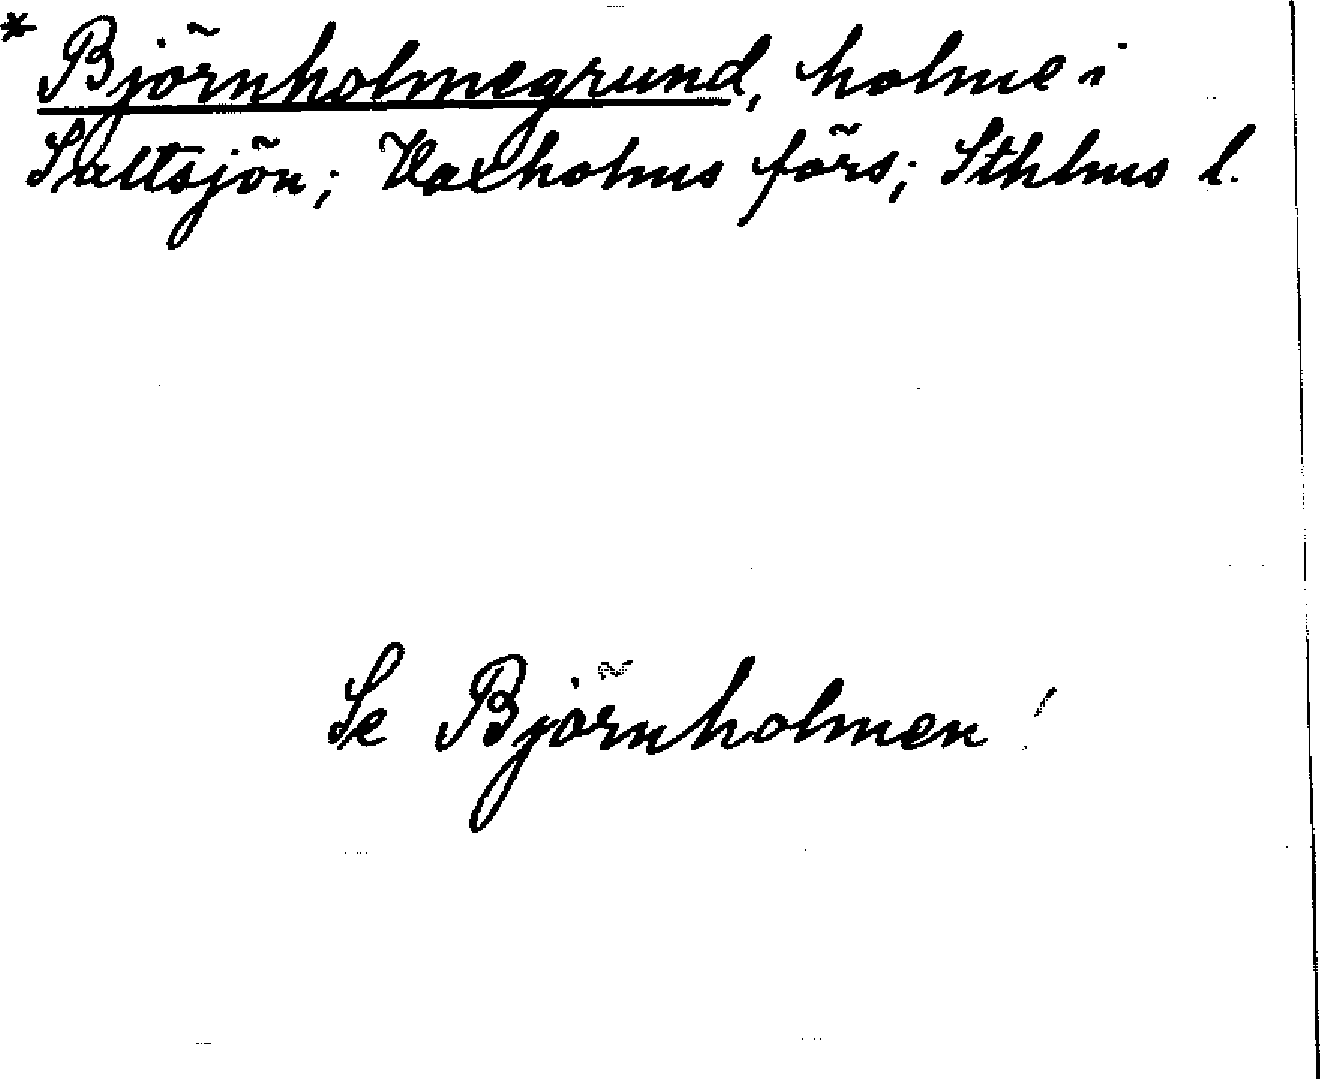 * Björnholmegrund, holme i
Saltsjön; Vaxholms förs; Sthlms l.
Se Björnholmen!